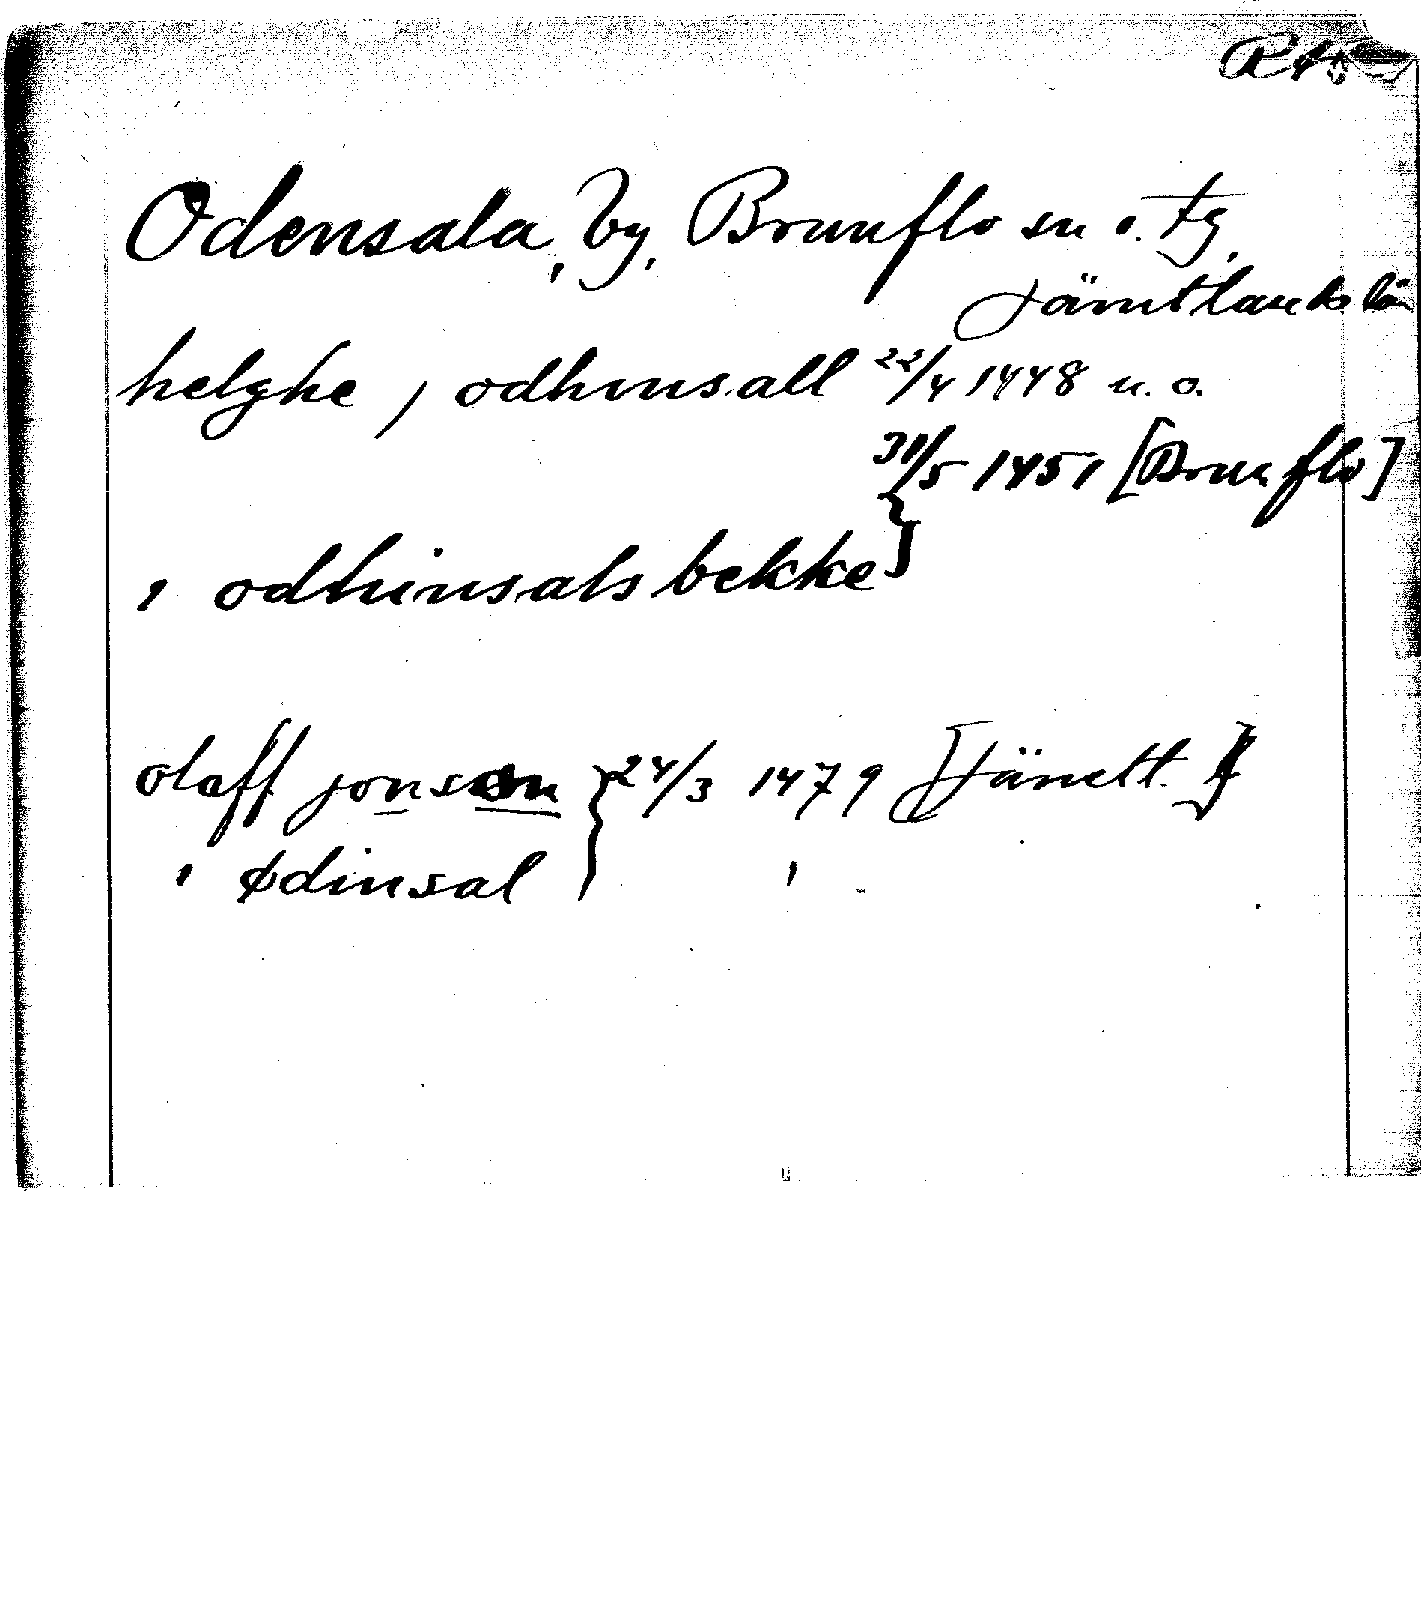 Odensala, by, Brunflo sn o. tg,
Jämtlands län
helghe, odhinsall 22/4 1448 u. o.
31/5 1451 [Brunflo]
, odhinsals bekke }
olaff jonson } 24/3 1479 [Jämtl.]
, ødinsal